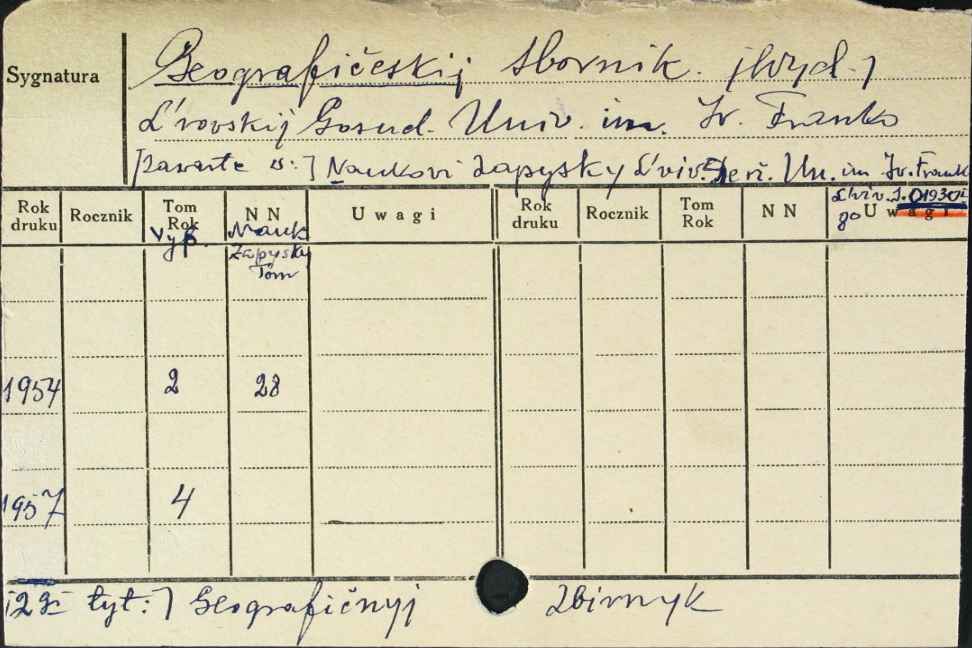 Sygnatura
Geografičeskij sbornik. [Wyd.]
L'vovskij Gosud. Univ. im. Iv. Franko
[zawarte w:] Naukovi Zapysky L'viv. Derž. Un. im Iv. Frank
Rok druku Rocznik Tom Rok NN Uwagi Rok druku Rocznik Tom Rok NN Uwagi
Vyp. Nauk
Zapysky
Tom
1954 2 28
1957 4
tyt:] Geografičnyj Zbirnyk